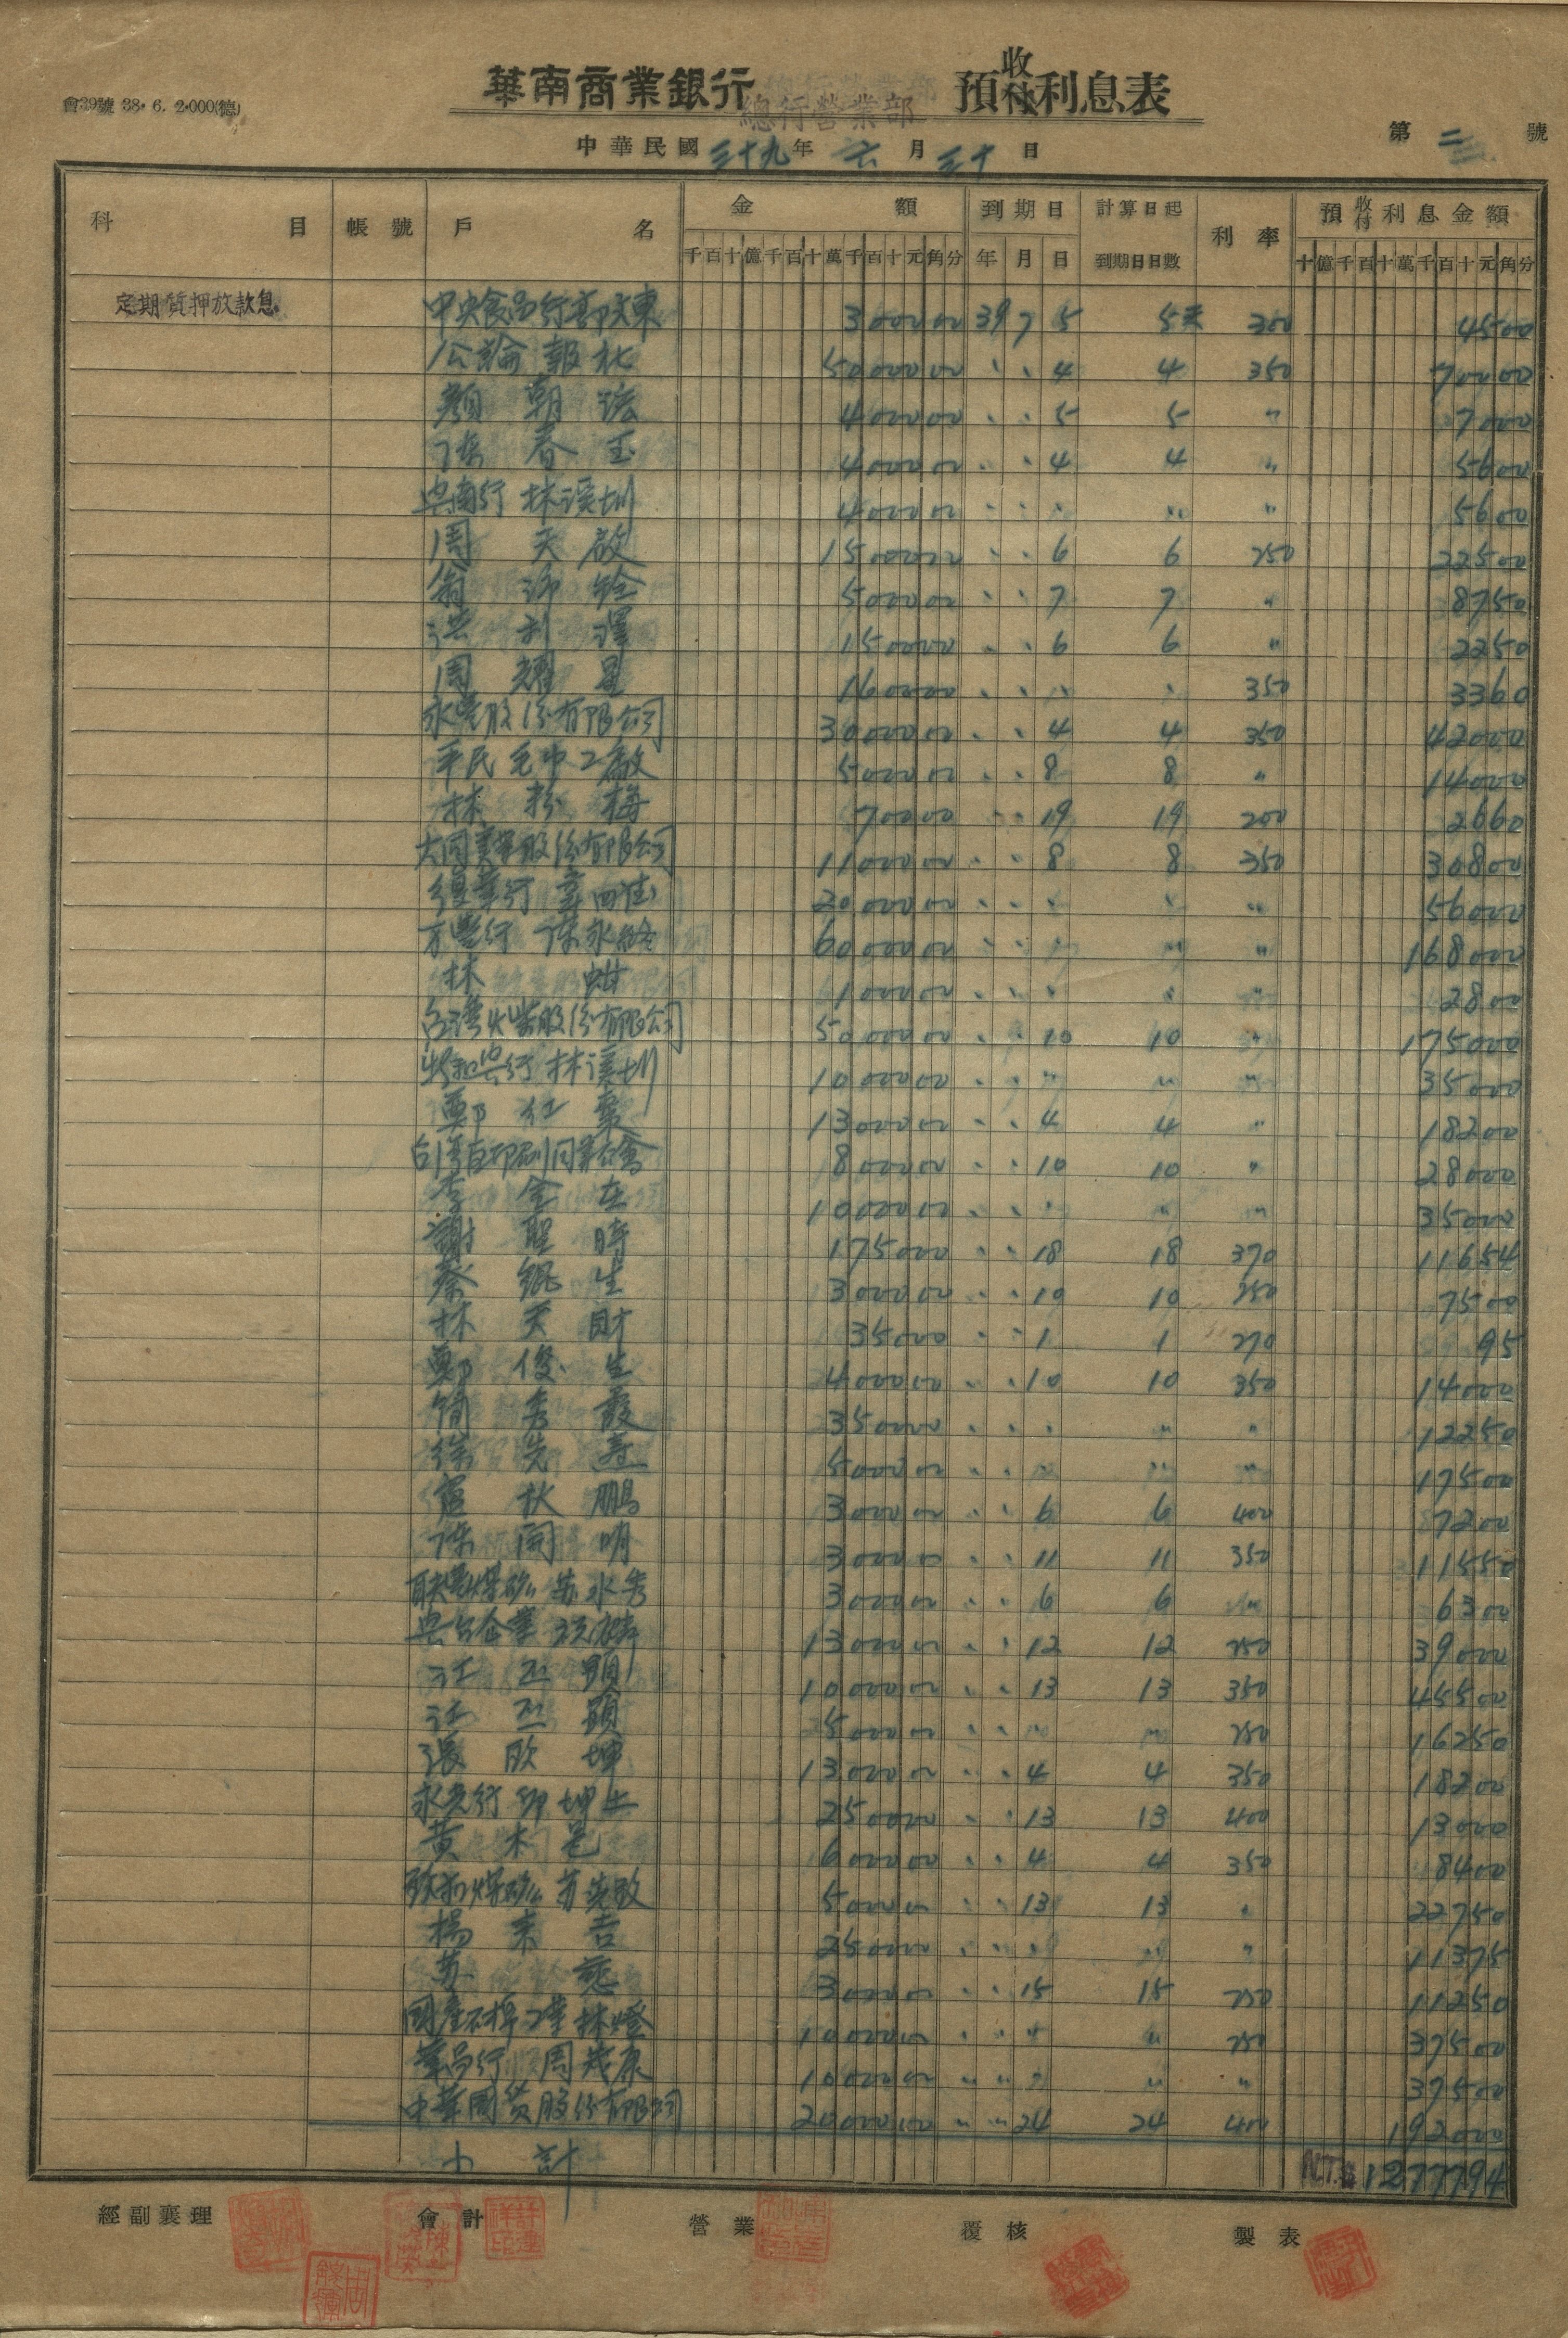 會39號 38.6.2.000(德)
華南商業銀行 預收付利息表
總行營業部
中華民國三十九年六月三十日
第二號
科目 帳號 戶名 金額 到期日 計算日起到期日日數 利率 預收付利息金額
千百十億千百十萬千百十元角分 年月日 十億千百十萬千百十元角分
定期質押放款息 中央食品行 3000 00 39 7 5 5天 300 45 00
公論報社 50000 00 、 、 4 4 350 700 00
顏朝 4000 00 、 、 5 5 〃 70 00
陳春玉 4000 00 、 、 4 4 〃 56 00
興南行 林溪圳 4000 00 、 、 、 〃 〃 56 00
周天啟 15000 00 、 、 6 6 250 225 00
5000 00 、 、 7 7 〃 87 50
洪 1500 00 、 、 6 6 〃 22 50
周耀星 1600 00 、 、 〃 、 350 33 60
永豐股份有限公司 30000 00 、 、 4 4 350 420 00
平民毛巾工廠 5000 00 、 、 8 8 〃 140 00
林 梅 700 00 、 、 19 19 200 26 60
大同 股份有限公司 11000 00 、 、 8 8 350 308 00
復華行 20000 00 、 、 、 、 〃 560 00
豐行 陳永 60000 00 、 、 〃 〃 〃 1680 00
林 1000 00 、 、 、 、 〃 28 00
台灣火柴股份有限公司 50000 00 、 、 10 10 〃 1750 00
興行 林溪圳 10000 00 、 、 〃 〃 〃 350 00
鄭 13000 00 、 、 4 4 〃 182 00
台灣省印刷同業公會 8000 00 、 、 10 10 〃 280 00
李金在 10000 00 、 、 、 〃 〃 350 00
謝聖時 1750 00 、 、 18 18 370 116 54
蔡錕生 3000 00 、 、 10 10 250 75 00
林天財 350 00 、 、 1 1 270 95
鄭俊生 4000 00 、 、 10 10 350 140 00
簡秀霞 3500 00 、 、 、 〃 〃 122 50
徐先 5000 00 、 、 〃 〃 〃 175 00
盧秋鵬 3000 00 、 、 6 6 400 72 00
陳開明 3000 00 、 、 11 11 350 115 50
聯豐煤礦 蘇水秀 3000 00 、 、 6 6 〃 63 00
興台企業 13000 00 、 、 12 12 250 390 00
江 顕 10000 00 、 、 13 13 350 455 00
江 顕 5000 00 、 、 〃 〃 250 162 50
張欽坤 13000 00 、 、 4 4 350 182 00
永光行 坤土 2500 00 、 、 13 13 400 130 00
黃木 6000 00 、 、 4 4 350 84 00
煤礦 5000 00 、 、 13 13 〃 227 50
楊來吉 2500 00 、 、 、 〃 〃 113 75
蘇 3000 00 、 、 15 15 250 112 50
國產石棉 林燈 10000 00 、 、 〃 〃 250 375 00
華昌行 周茂康 10000 00 〃 〃 〃 〃 〃 375 00
中華國貨股份有限公司 20000 00 〃 〃 24 24 400 1920 00
小計 NT.$ 12777 94
經副襄理 會計 營業 覆核 製表